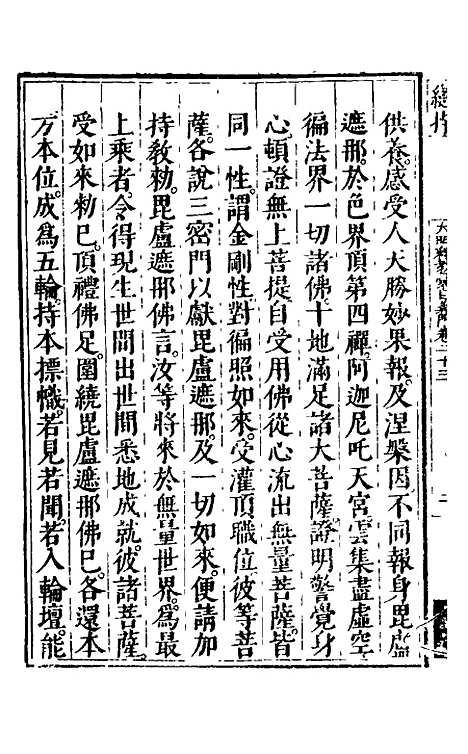 供養。感受人天勝妙果報。及涅槃因不同報身毘盧
遮那。於色界頂第四禪。阿迦尼吒天宮。雲集盡虛空
徧法界一切諸佛。十地滿足諸大菩薩。證明警覺身
心。頓證無上菩提。自受用佛。從心流出無量菩薩。皆
同一性。謂金剛性。對徧照如來。受灌頂職位。彼等菩
薩。各說三密門。以獻毘盧遮那。及一切如來。便請加
持教勅。毘盧遮那佛言。汝等將來於無量世界。爲最
上乘者。令得現生世間出世間悉地成就。彼諸菩薩。
受如來勅已。頂禮佛足。圍繞毘盧遮那佛已。各還本
方本位。成爲五輪。持本標幟。若見若聞。若入輪壇。能